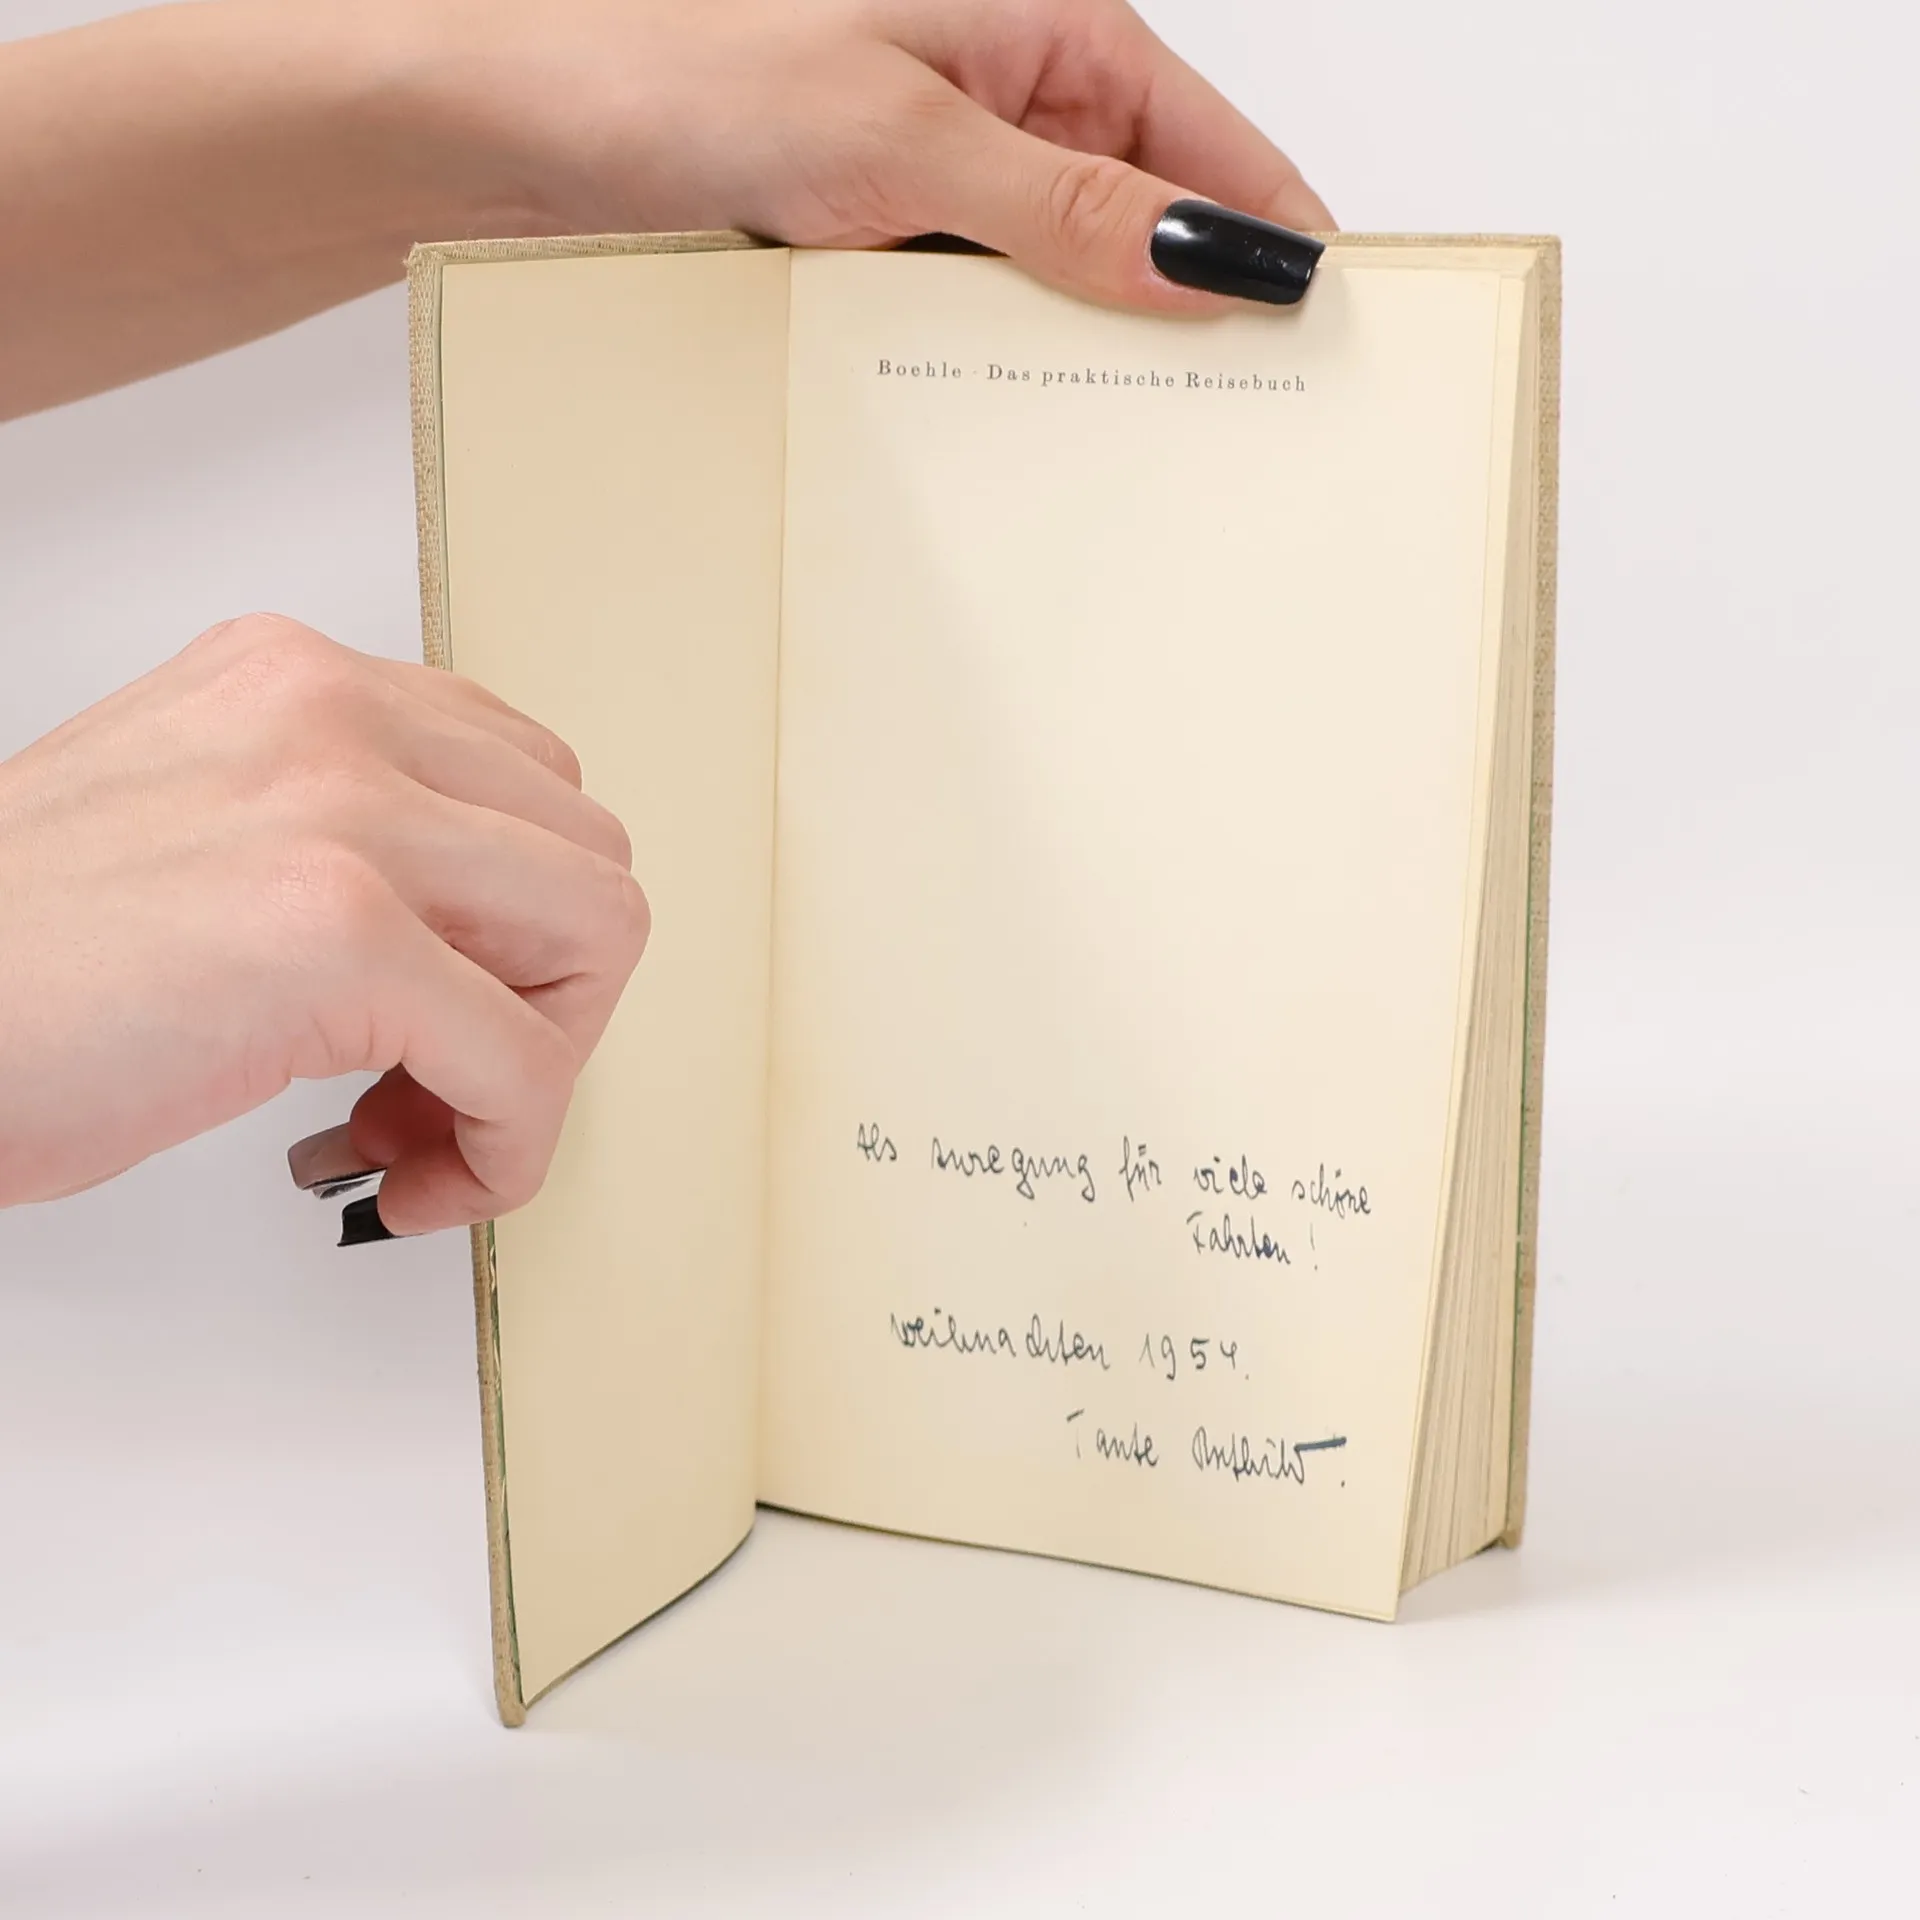 Boehle · Das praktische Reisebuch
Als Anregung für viele schöne
Fahrten!
Weihnachten 1954.
Tante